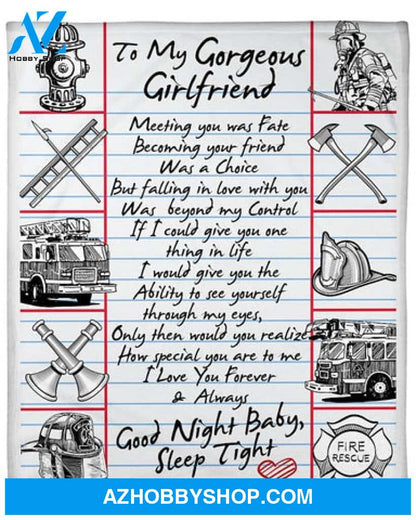 AZ
HOBBY SHOP
To My Gorgeous
Girlfriend
Meeting you was Fate
Becoming your friend
Was a Choice
But falling in love with you
Was beyond my Control
If I could give you one
thing in life
I would give you the
Ability to see yourself
through my eyes,
Only then would you realize
How special you are to me
I Love You Forever
& Always
Good Night Baby,
Sleep Tight
FIRE
RESCUE
AZHOBBYSHOP.COM